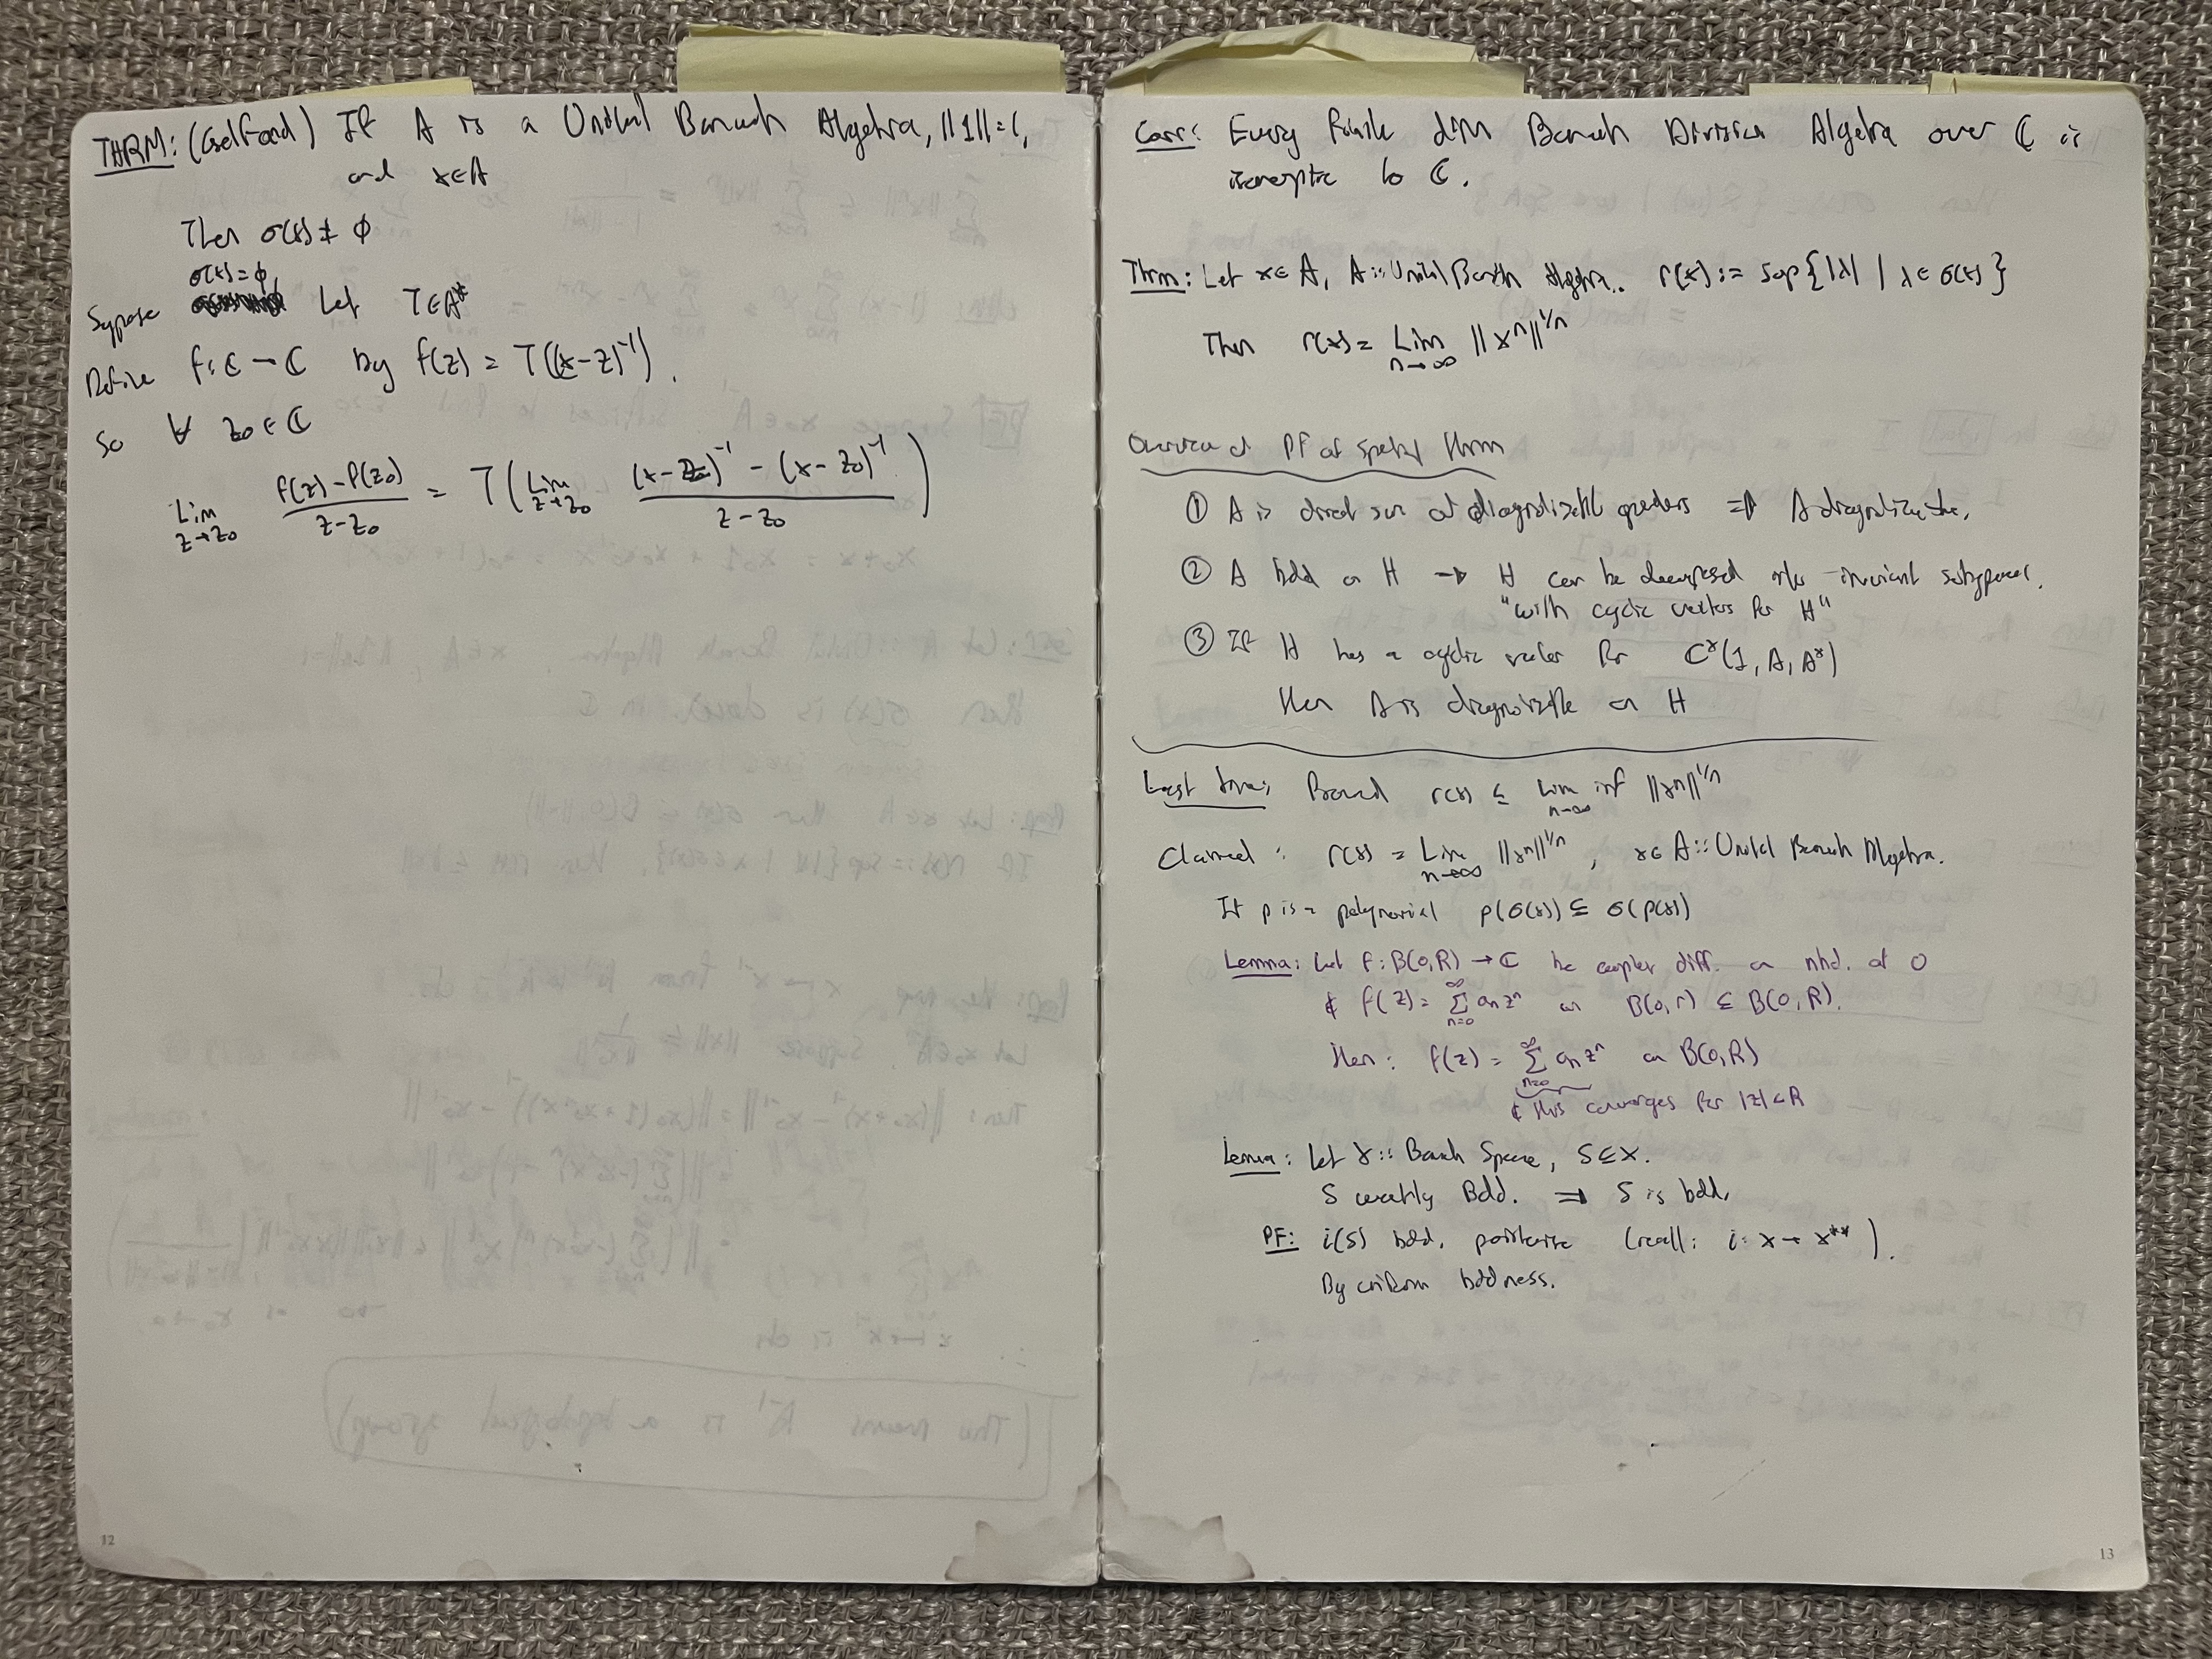 THRM: (Gelfand) If A is a Unital Banach Algebra, ||1||=1,
and x∈A
Then σ(x) ≠ ϕ
σ(x)=ϕ
Suppose Let T∈A*
Define f: ℂ → ℂ by f(z) = T((x-z)⁻¹).
So ∀ z₀ ∈ ℂ
Lim z→z₀ f(z) - f(z₀) / z - z₀ = T( Lim z→z₀ (x - z)⁻¹ - (x - z₀)⁻¹ / z - z₀ )
12
Corr: Every finite dim Banach Division Algebra over ℂ is
isomorphic to ℂ.
Thrm: Let x∈A, A::Unital Banach Algebra. r(x) := sup{|λ| | λ∈σ(x)}
Then r(x) = Lim n→∞ ||xⁿ||^1/n
Overview of PF of spectral thrm
① A is direct sum of diagonalizable operators ⇒ A diagonalizable,
② A bdd on H → H can be decomposed into invariant subspaces,
"with cyclic vectors for H"
③ If H has a cyclic vector for C*(1, A, A*)
then A is diagonalizable on H
Last time: Proved r(x) ≤ lim inf n→∞ ||xⁿ||^1/n
Claimed: r(x) = Lim n→∞ ||xⁿ||^1/n, x∈A::Unital Banach Algebra.
If p is a polynomial p(σ(x)) ⊆ σ(p(x))
Lemma: Let f: B(0,R) → ℂ be complex diff. on a nhd. of 0
& f(z) = ∞ Σ n=0 aₙzⁿ on B(0,r) ⊆ B(0,R).
then: f(z) = ∞ Σ n=0 aₙzⁿ on B(0,R)
& this converges for |z|<R
Lemma: Let X:: Banach Space, S⊆X.
S weakly Bdd. ⇒ S is bdd.
PF: i(S) bdd, pointwise (recall: i: X → X**).
By uniform bddness.
13